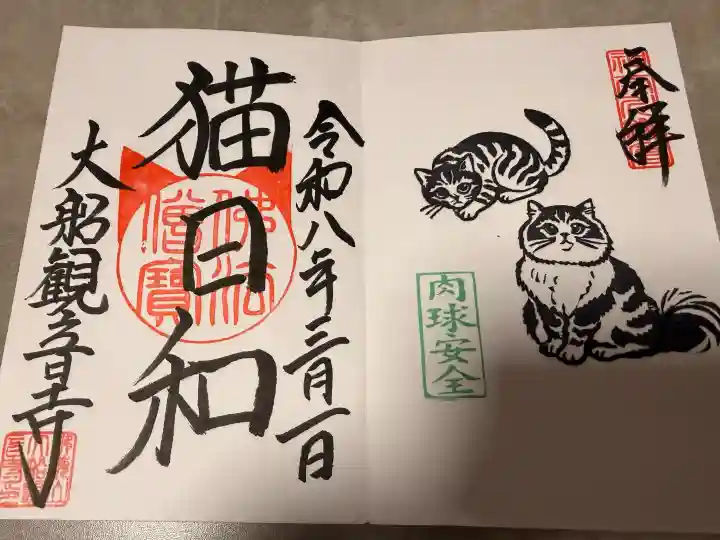 奉拝
肉球安全
令和八年三月一日
猫日和
佛法
僧寳
大船観音寺